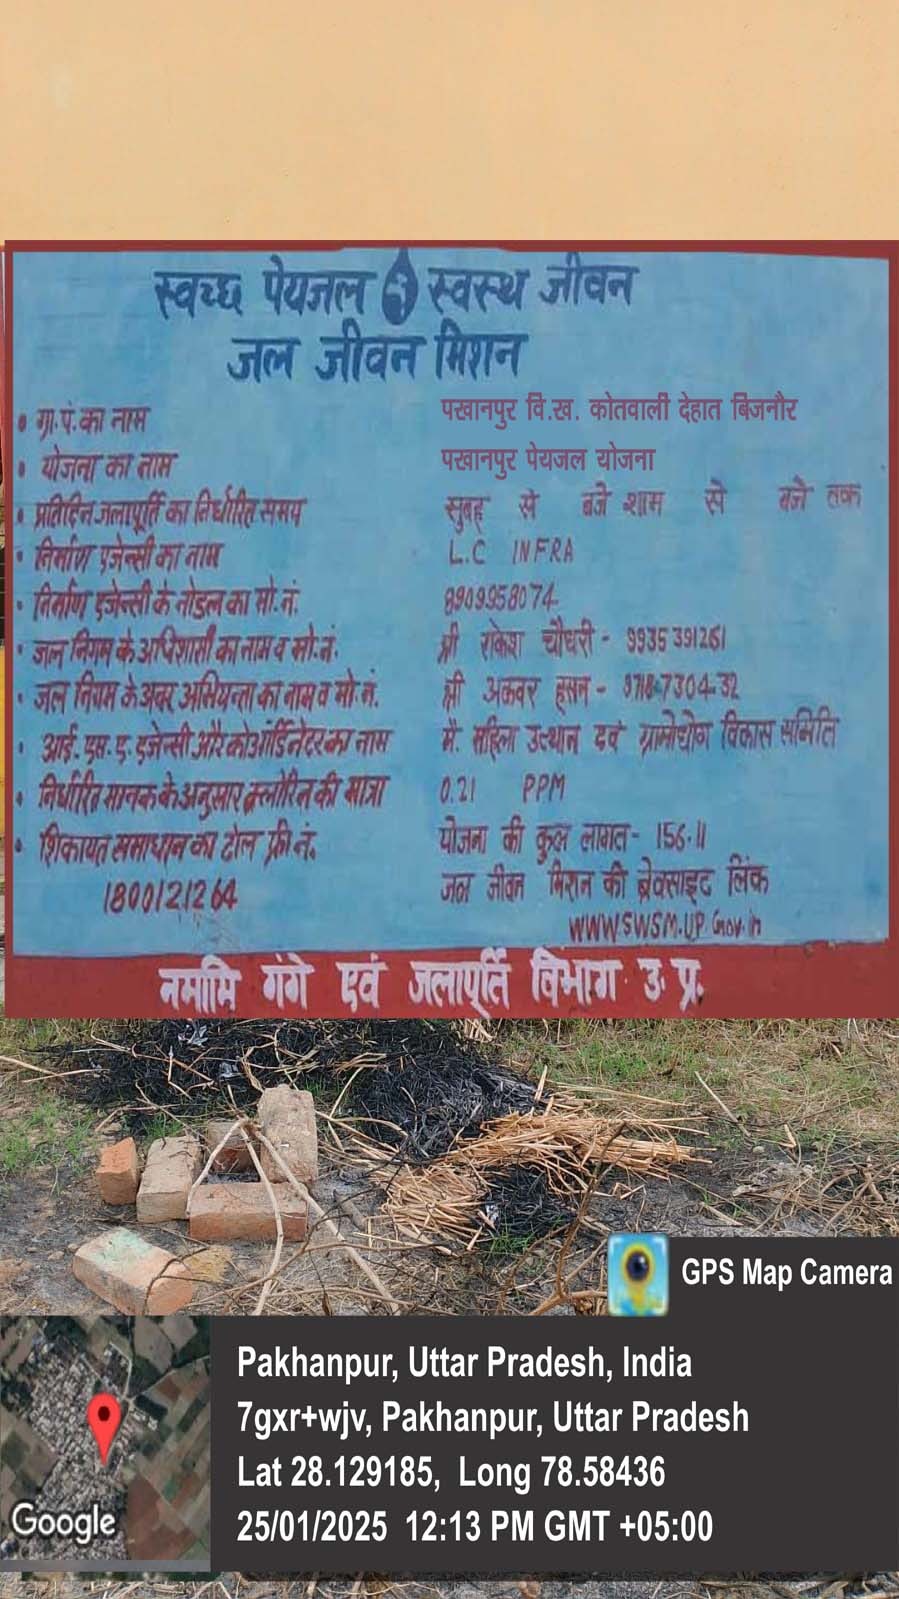 स्वच्छ पेयजल स्वस्थ जीवन
जल जीवन मिशन
ग्रा.पं.का नाम पखानपुर वि.ख. कोतवाली देहात बिजनौर
योजना का नाम पखानपुर पेयजल योजना
प्रतिदिन जलापूर्ति का निर्धारित समय सुबह से बजे शाम से बजे तक
निर्माण एजेन्सी का नाम L.C INFRA
निर्माण एजेन्सी के नोडल का मो.नं. 8909958074
जल निगम के अधिशासी का नाम व मो.नं. श्री राकेश चौधरी - 9935391261
जल निगम के अवर अभियन्ता का नाम व मो.नं. श्री अकबर हसन -
आई.एस.ए. एजेन्सी और कोऑर्डिनेटर का नाम मै. महिला उत्थान एवं ग्रामोद्योग विकास समिति
निर्धारित मानक के अनुसार क्लोरिन की मात्रा 0.21 PPM
शिकायत समाधान का टोल फ्री नं. योजना की कुल लागत - 156.11
1800121264 जल जीवन मिशन की बेवसाइट लिंक
WWW.SWSM.UP.Gov.in
नमामि गंगे एवं जलापूर्ति विभाग उ. प्र.
GPS Map Camera
Pakhanpur, Uttar Pradesh, India
7gxr+wjv, Pakhanpur, Uttar Pradesh
Lat 28.129185, Long 78.58436
25/01/2025 12:13 PM GMT +05:00
Google